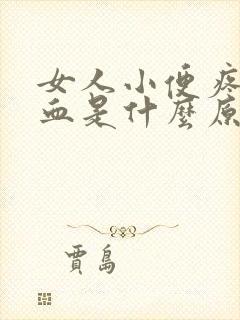 女人小便疼
血是什麼原
賈島